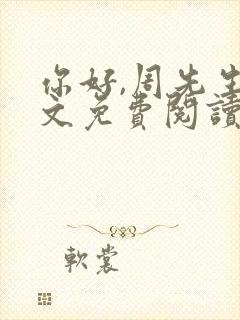 你好,周先生
文免費閱讀
軟裳